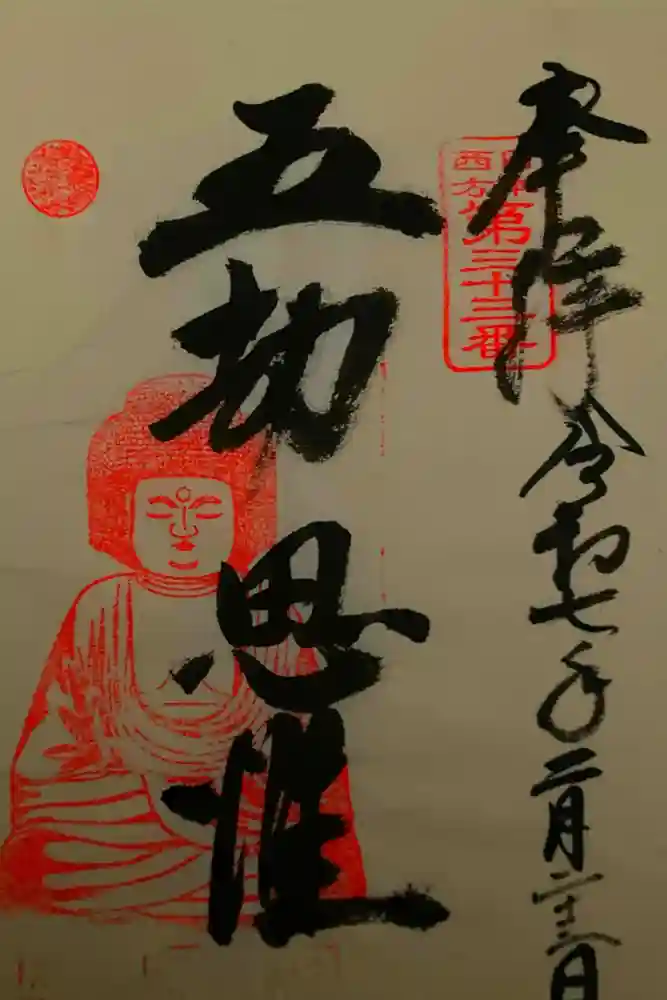 奉拝 令和七年二月二十二日
西方
第三十三番
五劫思惟